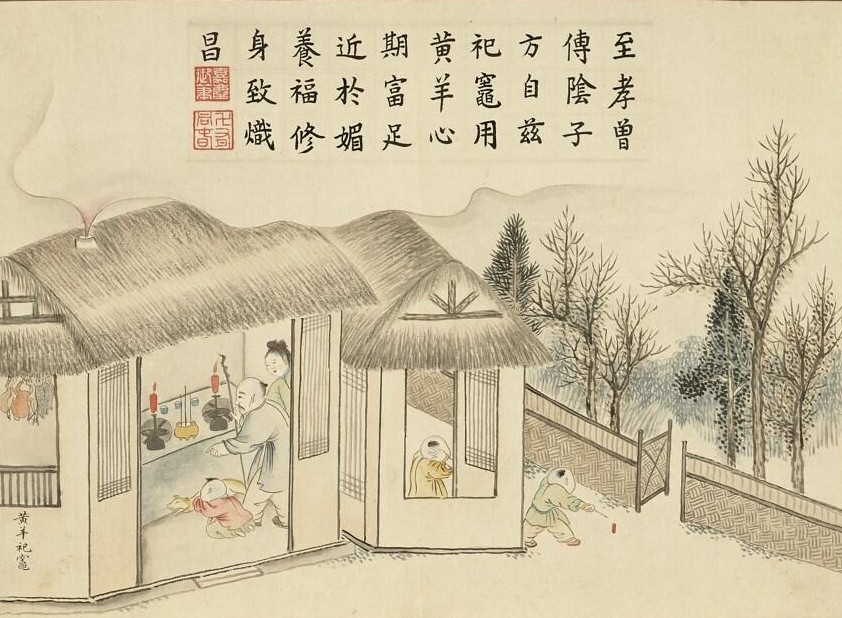 至孝曾
傳陰子
方自茲
祀竈用
黄羊心
期富足
近於媚
養福修
身致熾
昌
嘉慶
御筆
黄羊祀竈